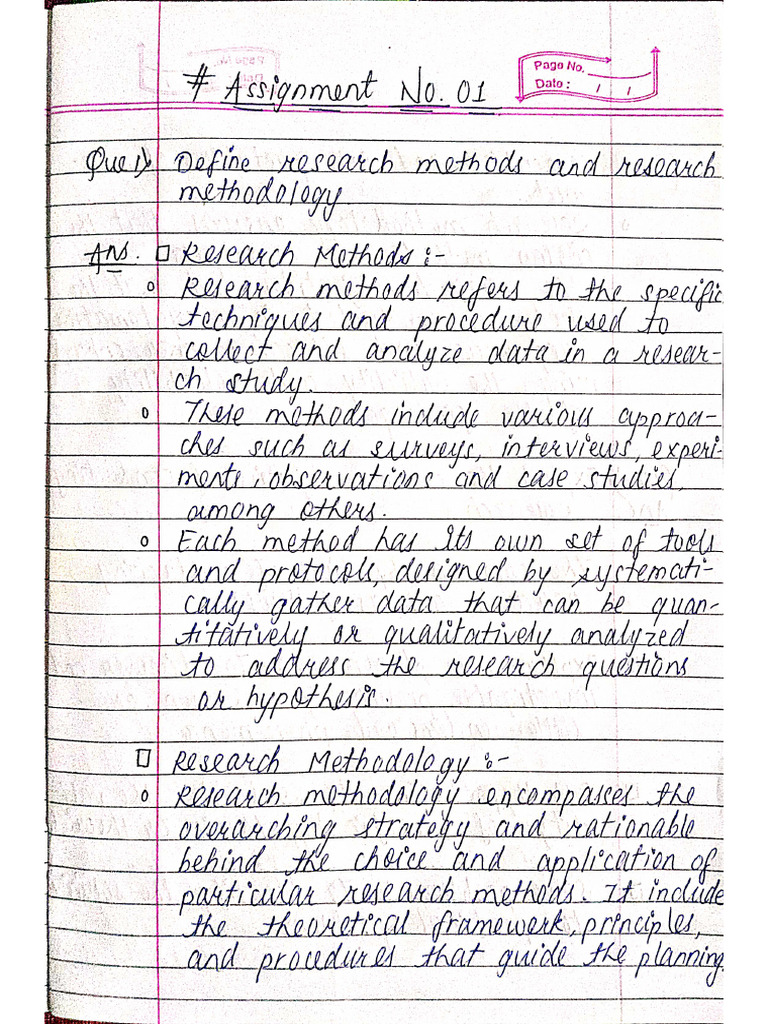 # Assignment No. 01
Page No.
Date : / /
Que 1) Define research methods and research
methodology
Ans. □ Research Methods :-
o Research methods refers to the specific
techniques and procedure used to
collect and analyze data in a resear-
ch study.
o These methods include various approa-
ches such as surveys, interviews, experi-
ments, observations and case studies,
among others.
o Each method has its own set of tools
and protocols, designed by systemati-
cally gather data that can be quan-
titatively or qualitatively analyzed
to address the research questions
or hypothesis.
□ Research Methodology :-
o Research methodology encompasses the
overarching strategy and rationable
behind the choice and application of
particular research methods. It include
the theoretical framework, principles,
and procedures that guide the planning